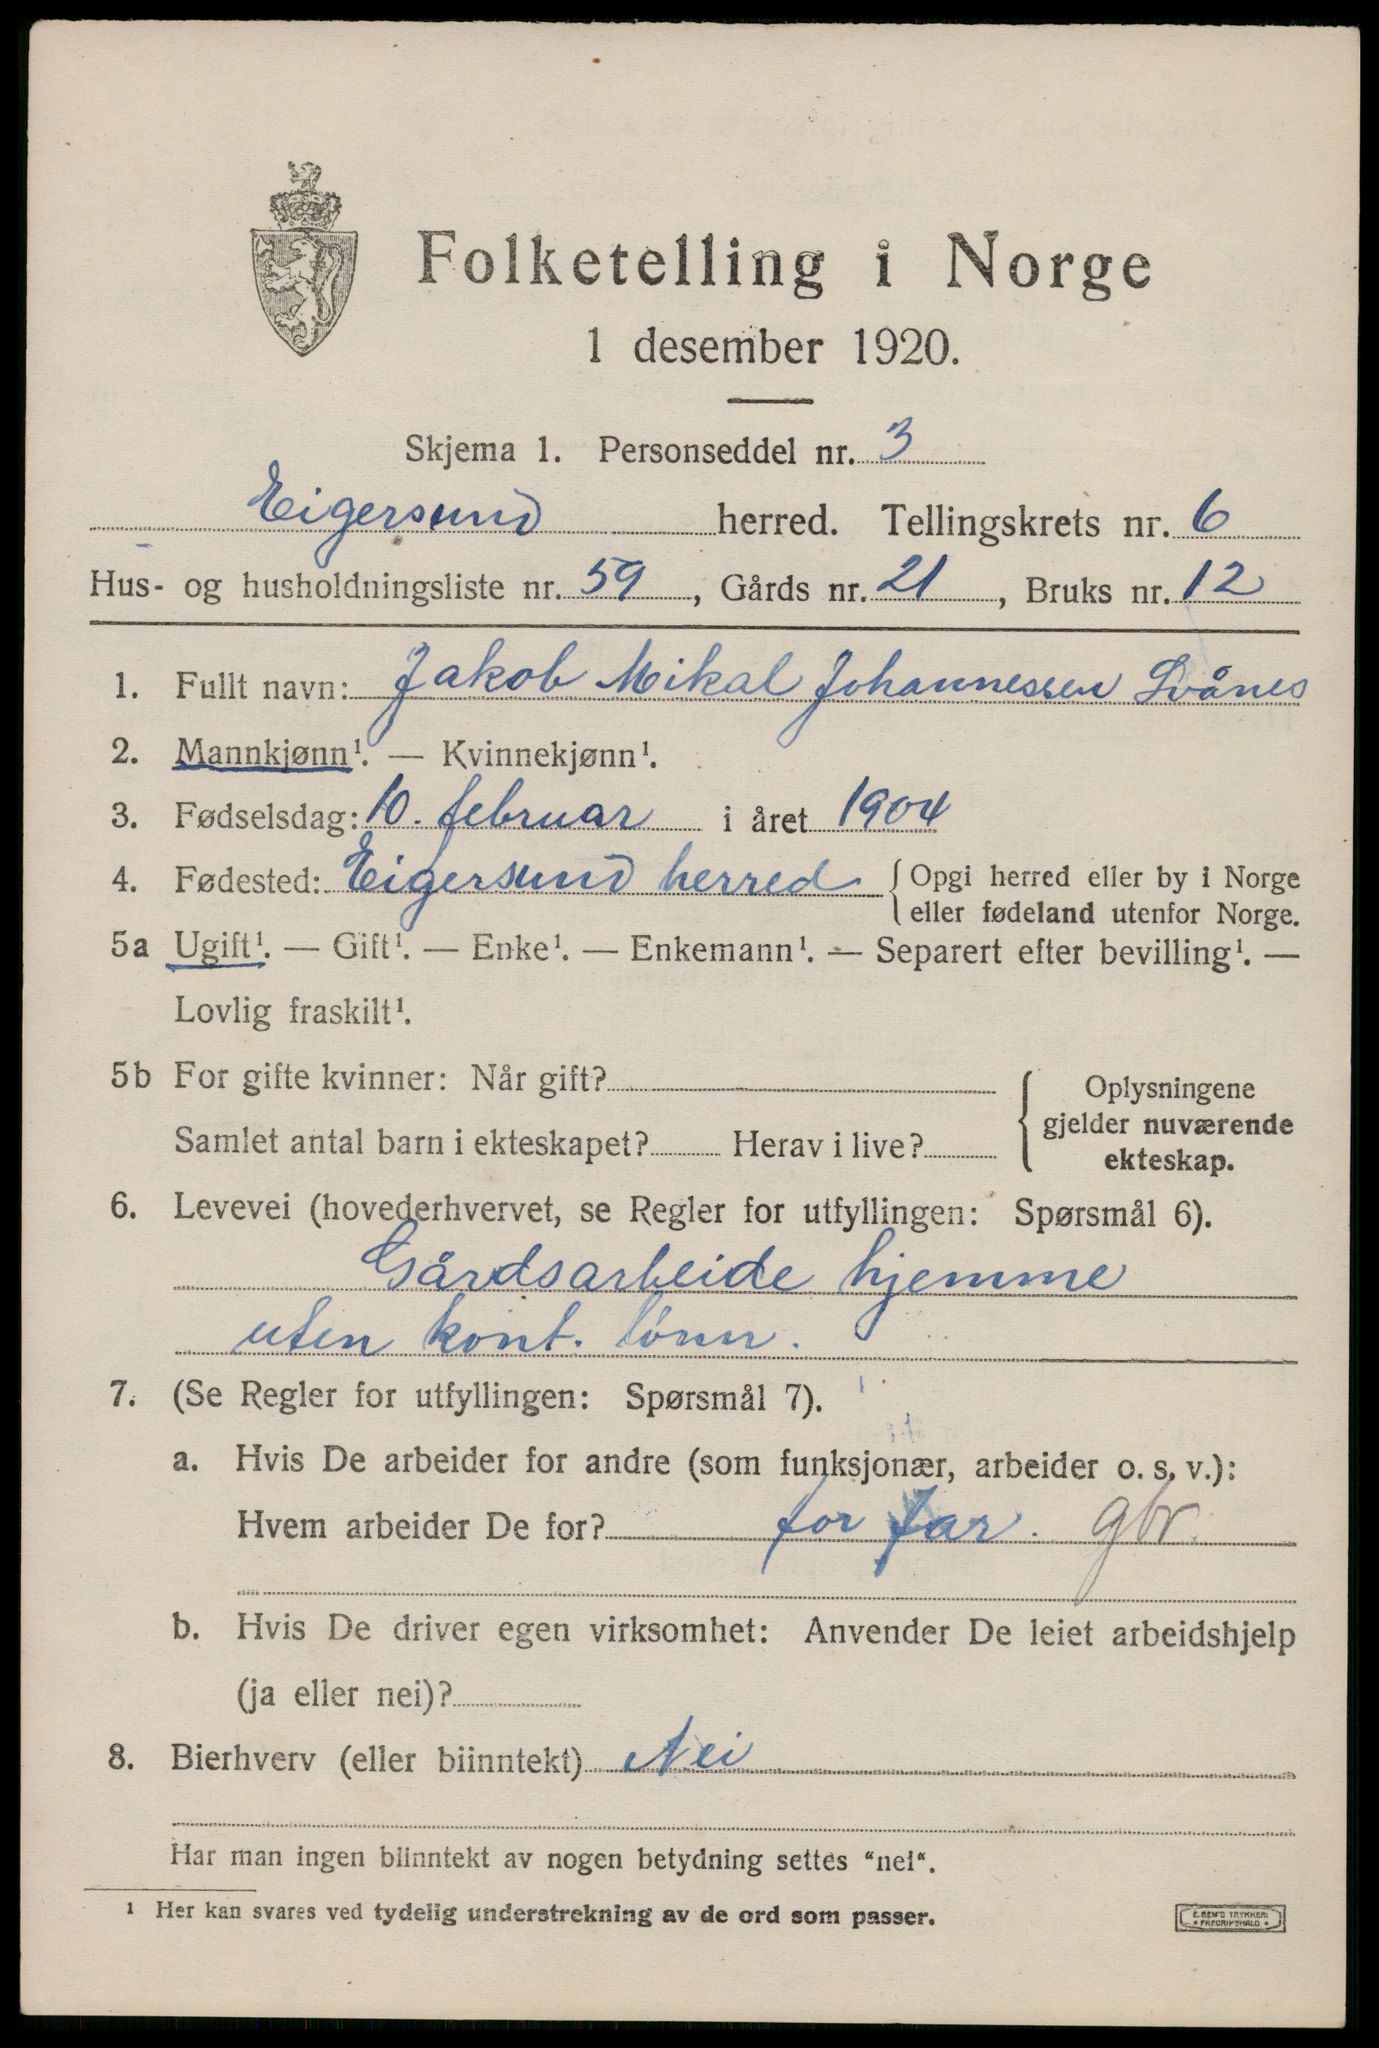 Folketelling i Norge
1 desember 1920.
Skjema 1. Personseddel nr. 3
Eigersund herred. Tellingskrets nr. 6
Hus- og husholdningsliste nr. 59, Gårds nr. 21, Bruks nr. 12
1. Fullt navn: Jakob Mikal Johannessen Svånes
2. Mannkjønn¹. — Kvinnekjønn¹.
3. Fødselsdag: 10. februar i året 1904
4. Fødested: Eigersund herred { Opgi herred eller by i Norge
eller fødeland utenfor Norge.
5a Ugift¹. — Gift¹. — Enke¹. — Enkemann¹. — Separert efter bevilling¹. —
Lovlig fraskilt¹.
5b For gifte kvinner: Når gift?
Samlet antal barn i ekteskapet? Herav i live?
Oplysningene
gjelder nuværende
ekteskap.
6. Levevei (hovederhvervet, se Regler for utfyllingen: Spørsmål 6).
Gårdsarbeide hjemme
uten kont. lønn.
7. (Se Regler for utfyllingen: Spørsmål 7).
a. Hvis De arbeider for andre (som funksjonær, arbeider o. s. v.):
Hvem arbeider De for? for far. gbr.
b. Hvis De driver egen virksomhet: Anvender De leiet arbeidshjelp
(ja eller nei)?
8. Bierhverv (eller biinntekt) Nei
Har man ingen biinntekt av nogen betydning settes "nei".
¹ Her kan svares ved tydelig understrekning av de ord som passer.
E. SEM'S TRYKKERI
• FREDRIKSHALD •